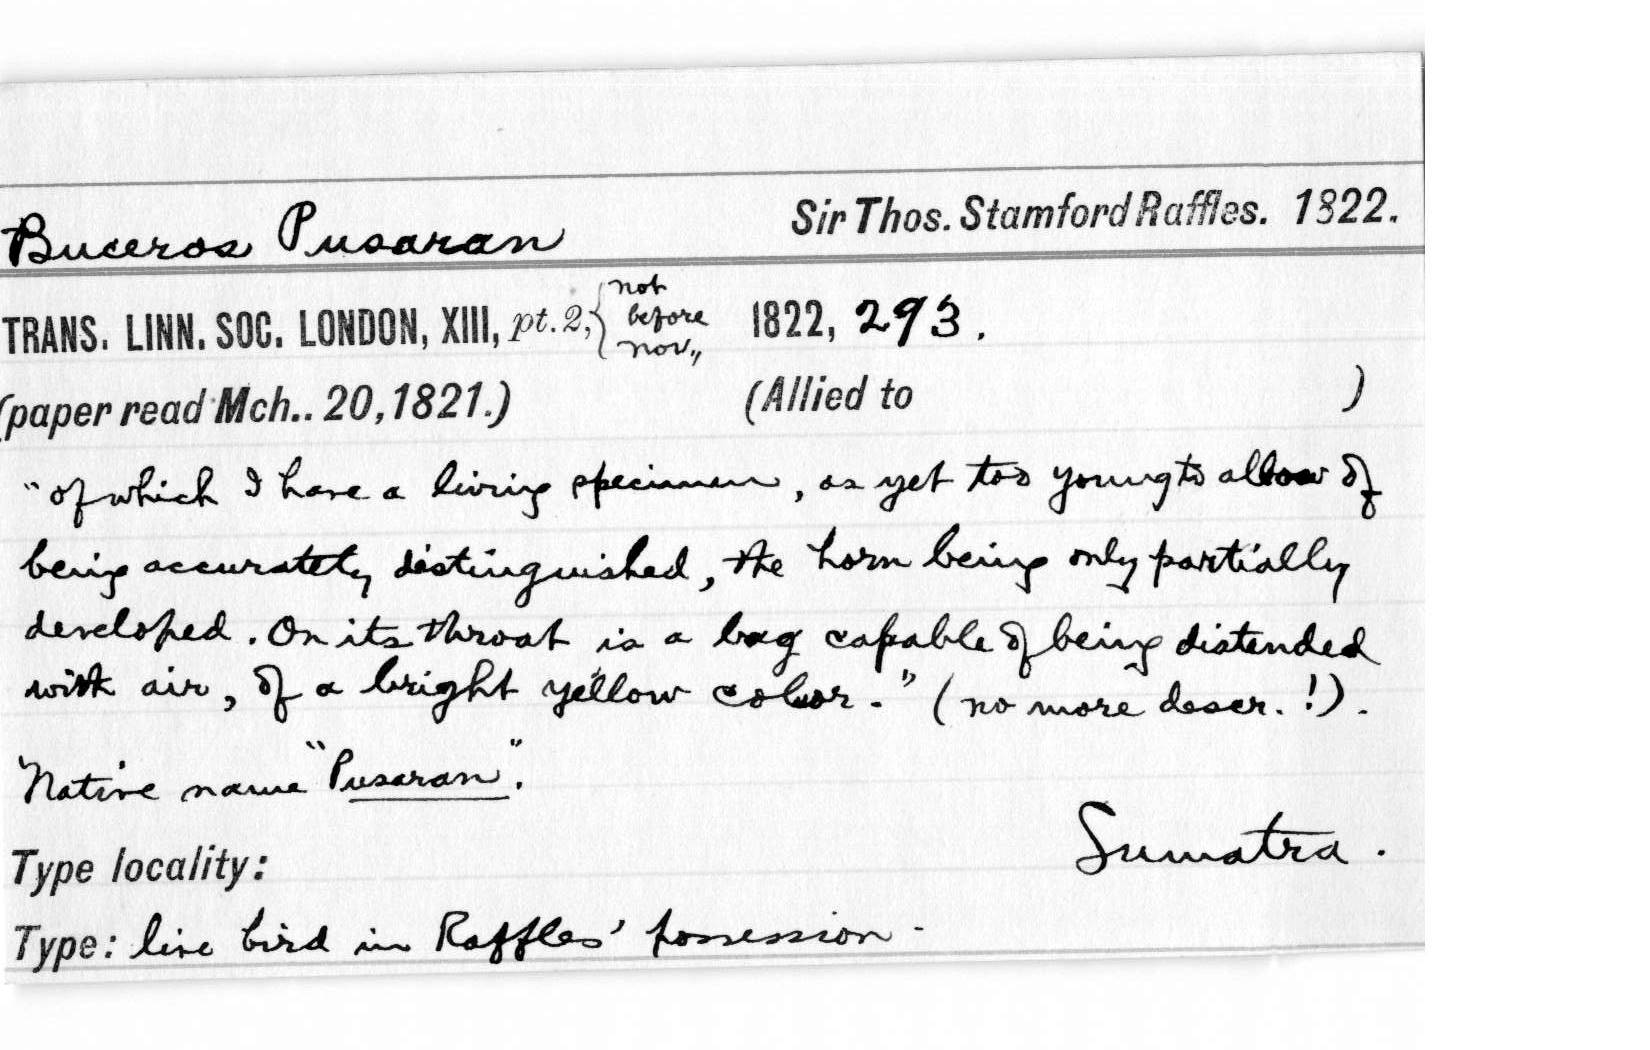 Buceros Pusaran Sir Thos. Stamford Raffles. 1822.
TRANS. LINN. SOC. LONDON, XIII, pt. 2, { not before nov., 1822, 293.
(paper read Mch.. 20, 1821.) (Allied to )
"of which I have a living specimen, as yet too young to allow of
being accurately distinguished, the horn being only partially
developed. On its throat is a bag capable of being distended
with air, of a bright yellow color." (no more descr.!).
Native name "Pusaran".
Sumatra.
Type locality:
Type: live bird in Raffles' possession.